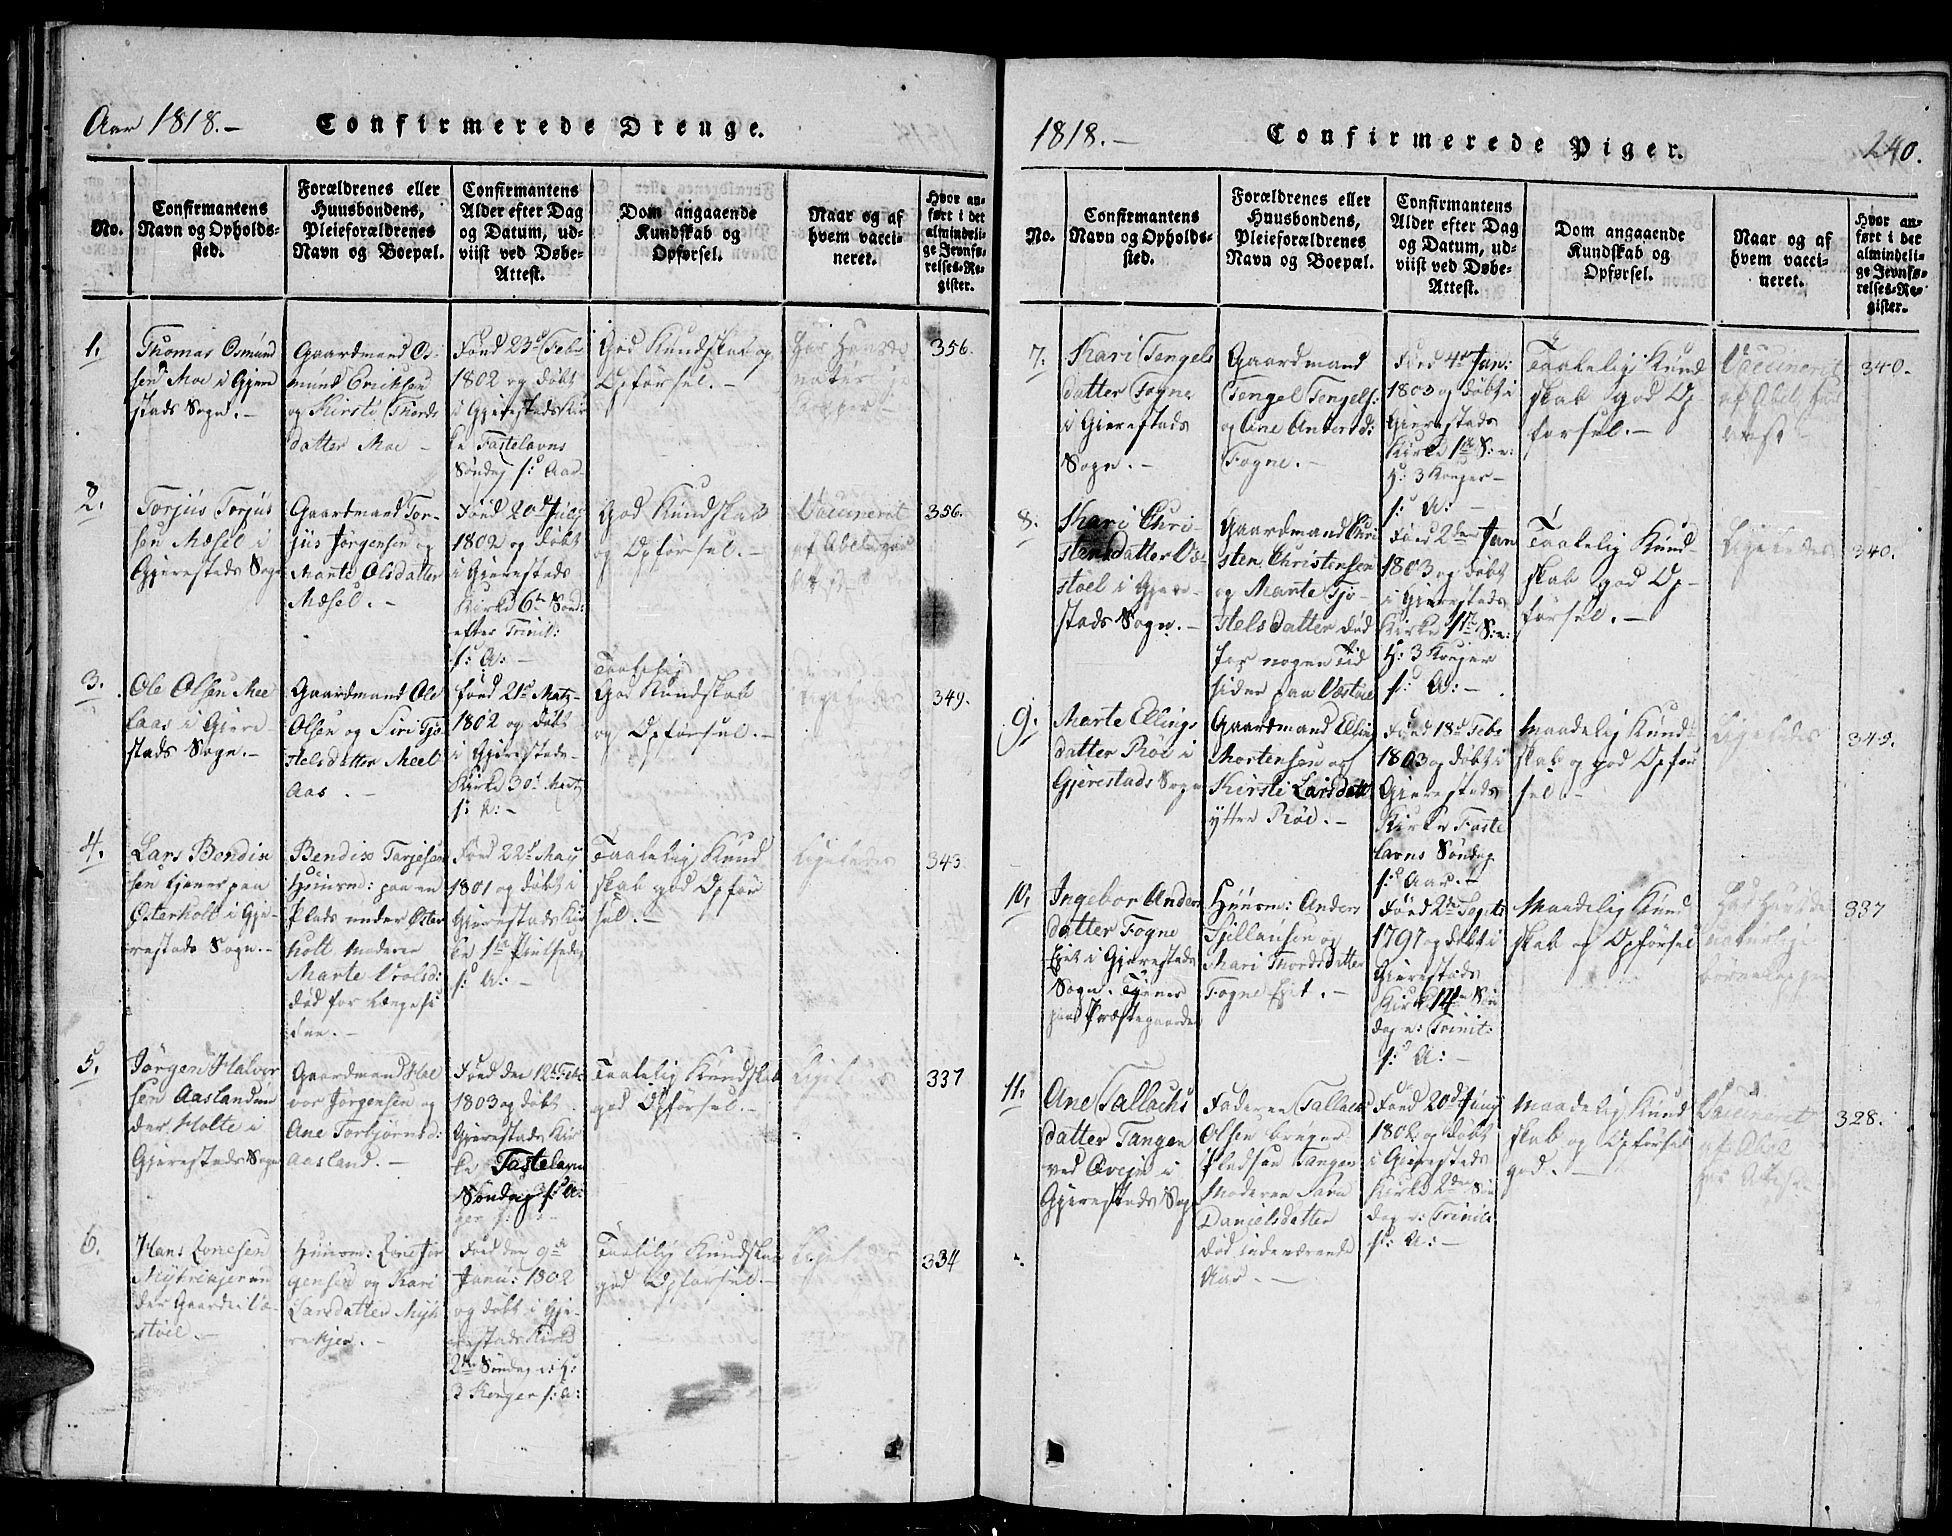 Aar 1818.-
Confirmerede Drenge.
No.
Confirmantens
Navn og Opholds-
sted.
Forældrenes eller
Huusbondens,
Pleieforældrenes
Navn og Boepæl.
Confirmantens
Alder efter Dag
og Datum, ud-
viist ved Døbe-
Attest.
Dom angaaende
Kundskab og
Opførsel.
Naar og af
hvem vacci-
neret.
Hvor an-
ført i det
almindeli-
ge Jevnfø-
relses-Re-
gister.
1.
Thomas Osmund
sen Moe i Gjere
stads Sogn.-
Gaardmand Os-
mund Eriksen
og Kirsti Thords
datter Moe -
Fød 23d Febr
1802 og døbt
i Gjerestads Kir
ke Fastelavns
Søndag s: Aar-
God Kundskab og
Opførsel.-
356.
2.
Torjus Torjus
sen Mæsel i
Gjerestads Sogn
Gaardmand Tor-
jus Jørgensen og
Marte Olsdatter
Mæsel.-
Fød 20d July
1802 og døbt
i Gjerestads
Kirke 6te Sønd:
efter Trinit:
s: A:-
God Kundskab
og Opførsel.-
Vaccineret
356.
3.
Ole Olsen Mee
laas i Gjere
stads Sogn.-
Gaardmand Ole
Olsen og Siri Tjø
stelsdatter Meel
Aas.-
Fød 21d Martz
1802 og døbt
i Gjerestads-
Kirke 30d Martz
s: A:-
Taalelig
God Kundskab
og Opførsel.-
Ligeledes
349.
4.
Lars Bendix
sen tjener paa
Østerholt i Gje-
restads Sogn.-
Bendix Tarjesen
Huusm: paa en
Plads under Øster
holt Moderen
Marte Arolsd:
død for længe si
den.-
Fød 22d May
1801 og døbt i
Gjerestads Kir
ke 1ste Pintsedag
s: A:-
Taalelig Kund
skab god Opfør
sel.-
Ligeledes
343
5.
Jørgen Halvor
sen Aasland un
der Holte i
Gjerestads Sogn
Gaardmand Hal
vor Jørgensen og
Ane Torbjørnsd:
Aasland.-
Fød den 12te Febr
1803 og døbt
Gjerestads Kir
ke Fastelavn
Søndag s: A:
Taalelig Kundskab
god Opførsel.-
Ligeledes
337
6.
Hans Zonesen
Myhrekjer un
der Gaarden Væ-
støel.-
Huusm: Zone Jør
gensen og Kari
Larsdatter Myh
rekjer.-
Fød den 9de
Janu: 1802
og døbt i Gje-
restads Kirke
2den Søndag e: H:
3 Konger s: A:
Taalelig Kundskab
god Opførsel.-
Ligel
334
1818.-
Confirmerede Piger.
240.
No.
Confirmantens
Navn og Opholds-
sted.
Forældrenes eller
Huusbondens,
Pleieforældrenes
Navn og Boepæl.
Confirmantens
Alder efter Dag
og Datum, ud-
viist ved Døbe-
Attest.
Dom angaaende
Kundskab og
Opførsel.
Naar og af
hvem vacci-
neret.
Hvor an-
ført i det
almindeli-
ge Jevnfø-
relses-Re-
gister.
7.
Kari Tengels
datter Fogne
i Gjerestads
Sogn.-
Gaardmand
Tengel Tengels:
og Ane Andersd:
Fogne.-
Fød 4de Jan:
1803 og døbt i
Gjerestads
Kirke 1ste S: e:
H: 3 Konger-
s: A:-
Taalelig Kund
skab god Op
førsel.-
Vaccineret
340.
8.
Kari Chri-
stensdatter Væ-
støel i Gjere-
stads Sogn.-
Gaardmand Chri
sten Christensen
og Marte Tjø-
stelsdatter død
for nogen Tid
siden paa Væstøel
Fød 2den Jan
1803 og døbt
i Gjerestads
Kirke 1ste S: e:
H: 3 Konger
s: A:-
Taalelig Kund-
skab god Op-
førsel.-
Ligeledes
340.
9.
Marte Ellings
datter Røe i
Gjerestads Sogn
Gaardmand Elling
Mortensen og
Kirsti Larsdatt
ytter Røe.-
Fød 18d Febr
1803 og døbt i
Gjerestads
Kirke Faste
lavns Søndag
s: Aar.-
Maadelig Kund-
skab og god Opfør
sel.-
Ligeledes
345.
10.
Ingebor Anders
datter Fogne
Eiet i Gjerestads
Sogn. Tjener
paa Præstegaarden
Huusm: Anders
Gjillausen og
Mari Thordsdatter
Fogne Eiet.-
Fød 2den Septr
1797 og døbt i
Gjerestads
Kirke 14de Søn
dag e: Trinit:
s: A:-
Maadelig Kund
skab og Opførsel
337
11.
Ane Tallachs
datter Tangen
ved Øvejn i
Gjerestads Sogn
Faderen Tallach
Olsen bruger
Pladsen Tangen
Moderen Sara
Danielsdatter
død indeværende
Aar.-
Fød 20d Juny
1802 og døbt
i Gjerestads
Kirke 2den Søn
dag e: Trinit:
s: A:-
Maadelig Kund
skab og Opførsel
god.-
Vaccineret
328.